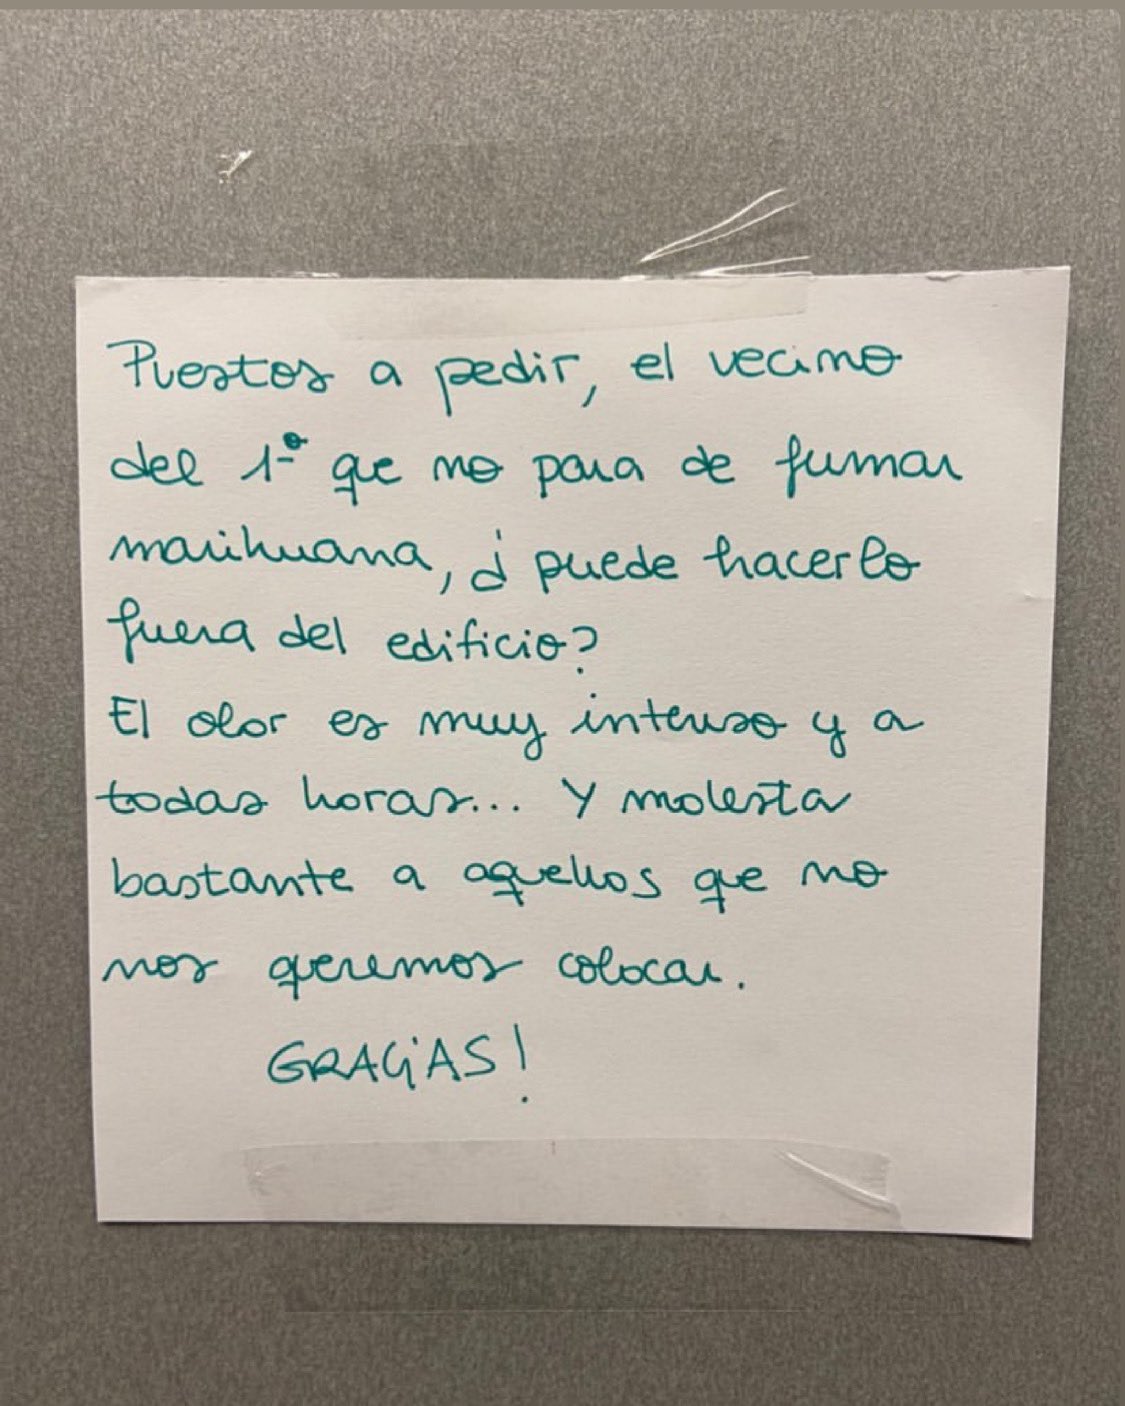 Puestos a pedir, el vecino
del 1º que no para de fumar
marihuana, ¿puede hacerlo
fuera del edificio?
El olor es muy intenso y a
todas horas... Y molesta
bastante a aquellos que no
nos queremos colocar.
GRACIAS!